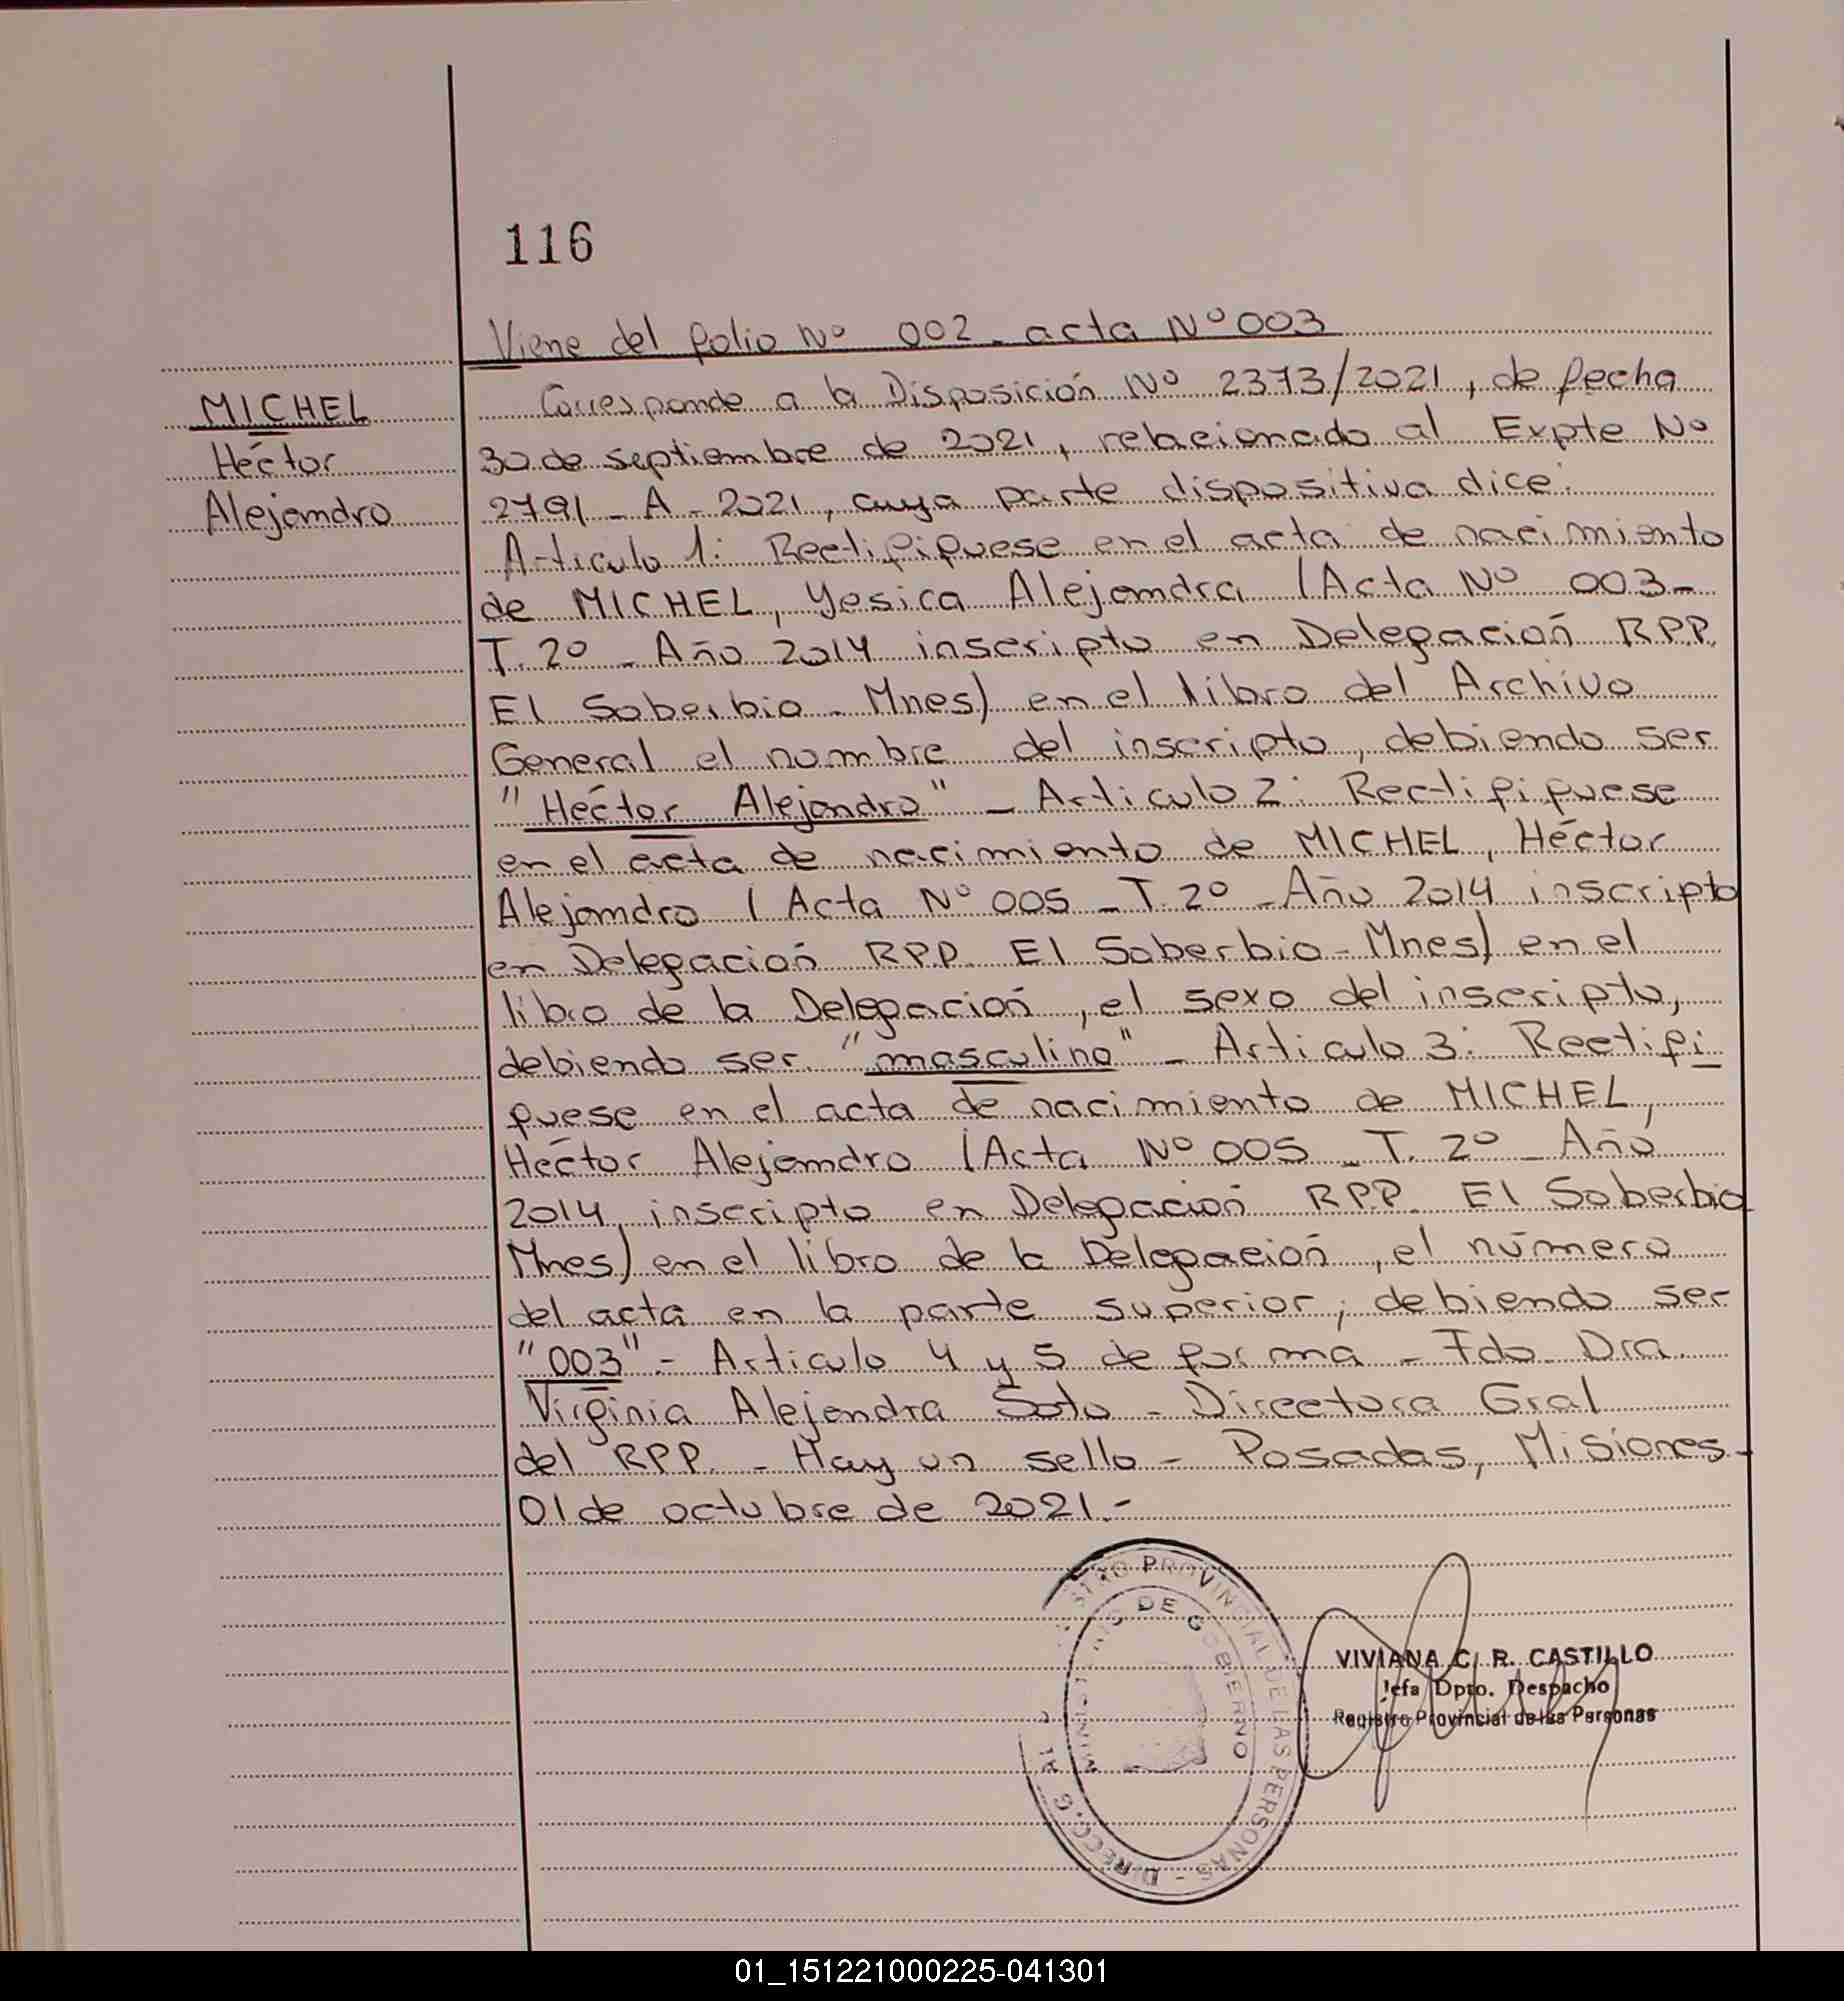 116
Viene del folio Nº 002 - acta Nº 003
MICHEL
Héctor
Alejandro
Corresponde a la Disposición Nº 2373/2021, de fecha
30 de septiembre de 2021, relacionado al Expte Nº
2791 - A - 2021, cuya parte dispositiva dice:
Articulo 1: Rectifiquese en el acta de nacimiento
de MICHEL, Yesica Alejandra (Acta Nº 003 -
T. 2º - Año 2014 inscripto en Delegación RPP.
El Soberbio - Mnes) en el libro del Archivo
General el nombre del inscripto, debiendo ser
"Héctor Alejandro" - Articulo 2: Rectifiquese
en el acta de nacimiento de MICHEL, Héctor
Alejandro (Acta Nº 005 - T. 2º - Año 2014 inscripto
en Delegación RPP. El Soberbio - Mnes) en el
libro de la Delegación, el sexo del inscripto,
debiendo ser "masculino" - Articulo 3: Rectifi
quese en el acta de nacimiento de MICHEL,
Héctor Alejandro (Acta Nº 005 - T. 2º - Año
2014, inscripto en Delegación RPP. El Soberbio
Mnes) en el libro de la Delegación, el número
del acta en la parte superior, debiendo ser
"003" - Articulo 4 y 5 de forma - Fdo. Dra.
Virginia Alejandra Soto - Directora Gral
del RPP. - Hay un sello - Posadas, Misiones -
01 de octubre de 2021.-
PROVINCIAL DE LAS PERSONAS - DIRECC. G
DE GOBIERNO
VIVIANA C. R. CASTILLO
Jefa Dpto. Despacho
Registro Provincial de las Personas
01_151221000225-041301